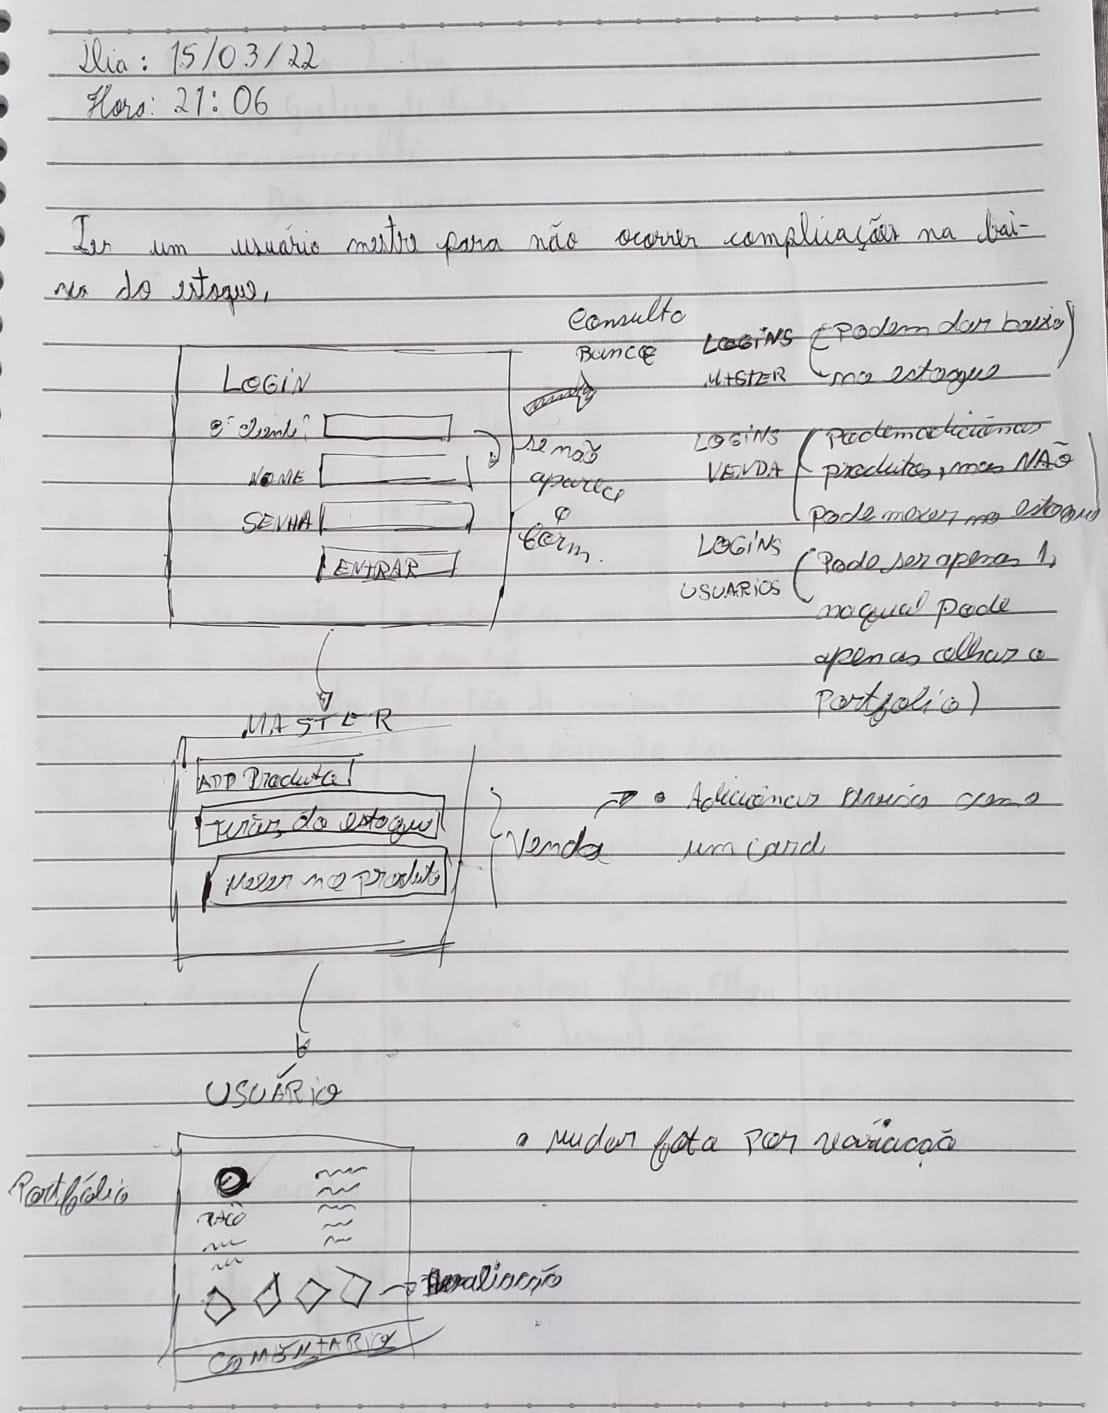 Dia: 15/03/22
Hora: 21:06
Ter um usuário mestre para não ocorrer complicações na bai-
xa do estoque,
Consulto
Banco
LOGINS
MASTER
(Podem dar baixa
no estoque)
LOGIN
É cliente?
NOME
SENHA
ENTRAR
se não
apareci
o
form.
LOGINS
VENDA
(Podem adicionar
produtos, mas NÃO
pode mexer no estoque)
LOGINS
USUARIOS
(Pode ser apenas 1,
no qual pode
apenas olhar o
Portfolio)
MASTER
ADD Produto
Tirar do estoque
Mexer no produto
Venda
• Adicionar
como
um card
USUÁRIO
• Mudar foto por variação
Portfólio
Avaliação
COMENTARIO